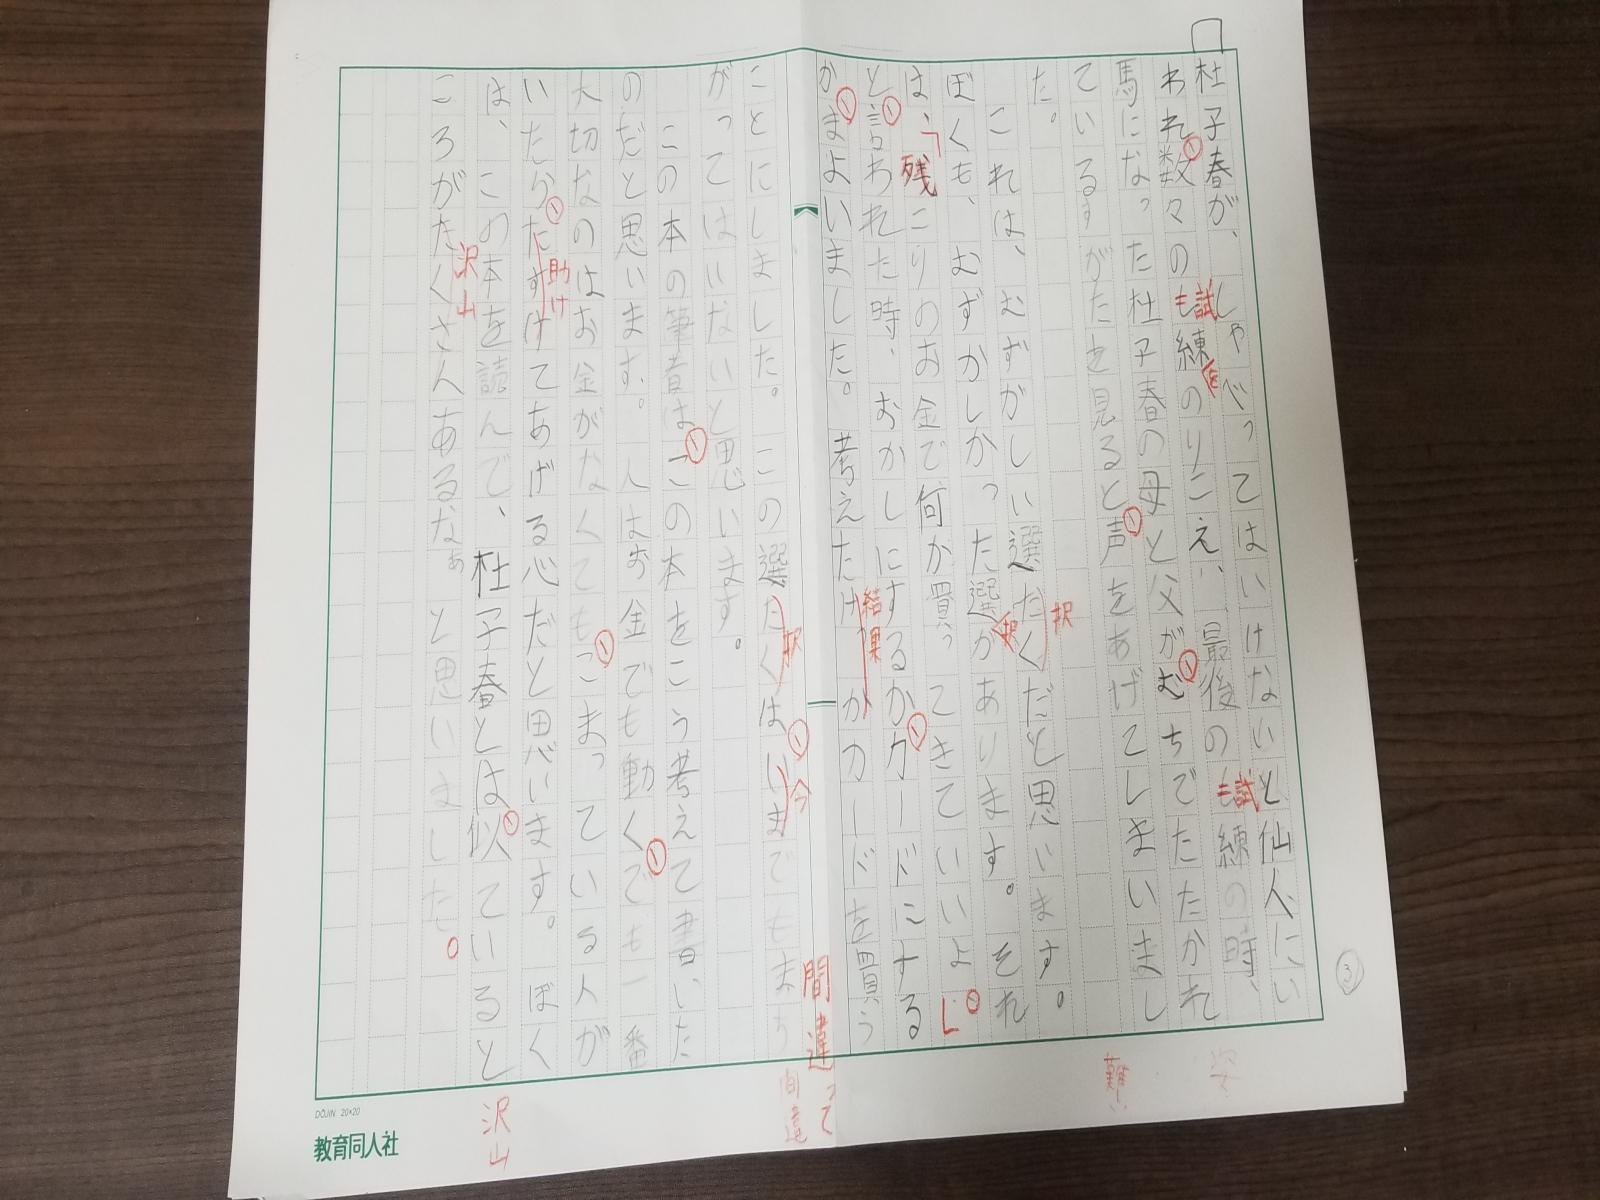 ③
杜子春が、しゃべってはいけないと仙人にい
われ数々の試練をのりこえ、最後の試練の時、
馬になった杜子春の母と父がむちでたたかれ
ているすがたを見ると声をあげてしまいまし
た。
これは、むずかしい選たくだと思います。
ぼくも、むずかしかった選択があります。それ
は、「残りのお金で何か買ってきていいよ」
と言われた時、おかしにするかカードにする
かまよいました。考えたけっかカードを買う
ことにしました。この選たくはいまでもまち
がってはいないと思います。
この本の筆者はこの本をこう考えて書いた
のだと思います。人はお金でも動くでも一番
大切なのはお金がなくてもこまっている人が
いたらたすけてあげる心だと思います。ぼく
は、この本を読んで、杜子春とは似ていると
ころがたくさんあるなぁと思いました。
択
択
結果
択
今
間違って
間違
助け
沢山
沢山
難い
姿
DŌJIN 20×20
教育同人社